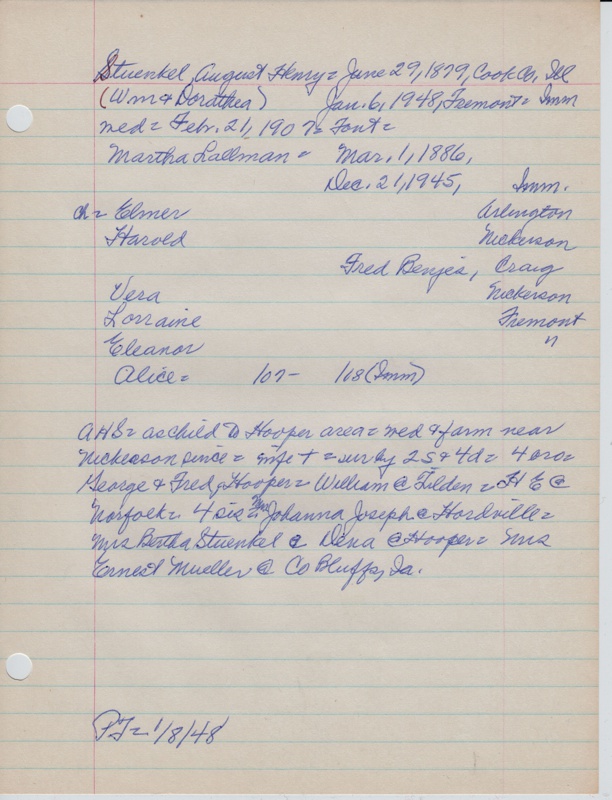 Stuenkel, August Henry = June 29, 1879, Cook Co, Ill
(Wm & Dorathea) Jan. 6, 1948, Fremont = Imm
med = Feb. 21, 1907 = Font =
Martha Lallman = Mar. 1, 1886,
Dec. 21, 1945, Imm.
ch = Elmer Arlington
Harold Nickerson
Fred Benjes, Craig
Vera Nickerson
Lorraine Fremont
Eleanor "
Alice = 107 - 108 (Imm)
AHS = as child to Hooper area = med & farm near
Nickerson since = wife + = sur by 2 S & 4 d = 4 bro =
George & Fred, Hooper = William @ Tilden = H E @
Norfolk = 4 sis = Mrs Johanna Joseph @ Hordville =
Mrs Bertha Stuenkel & Dena @ Hooper = Mrs
Ernest Mueller @ Co Bluffs, Ia.
1/8/48